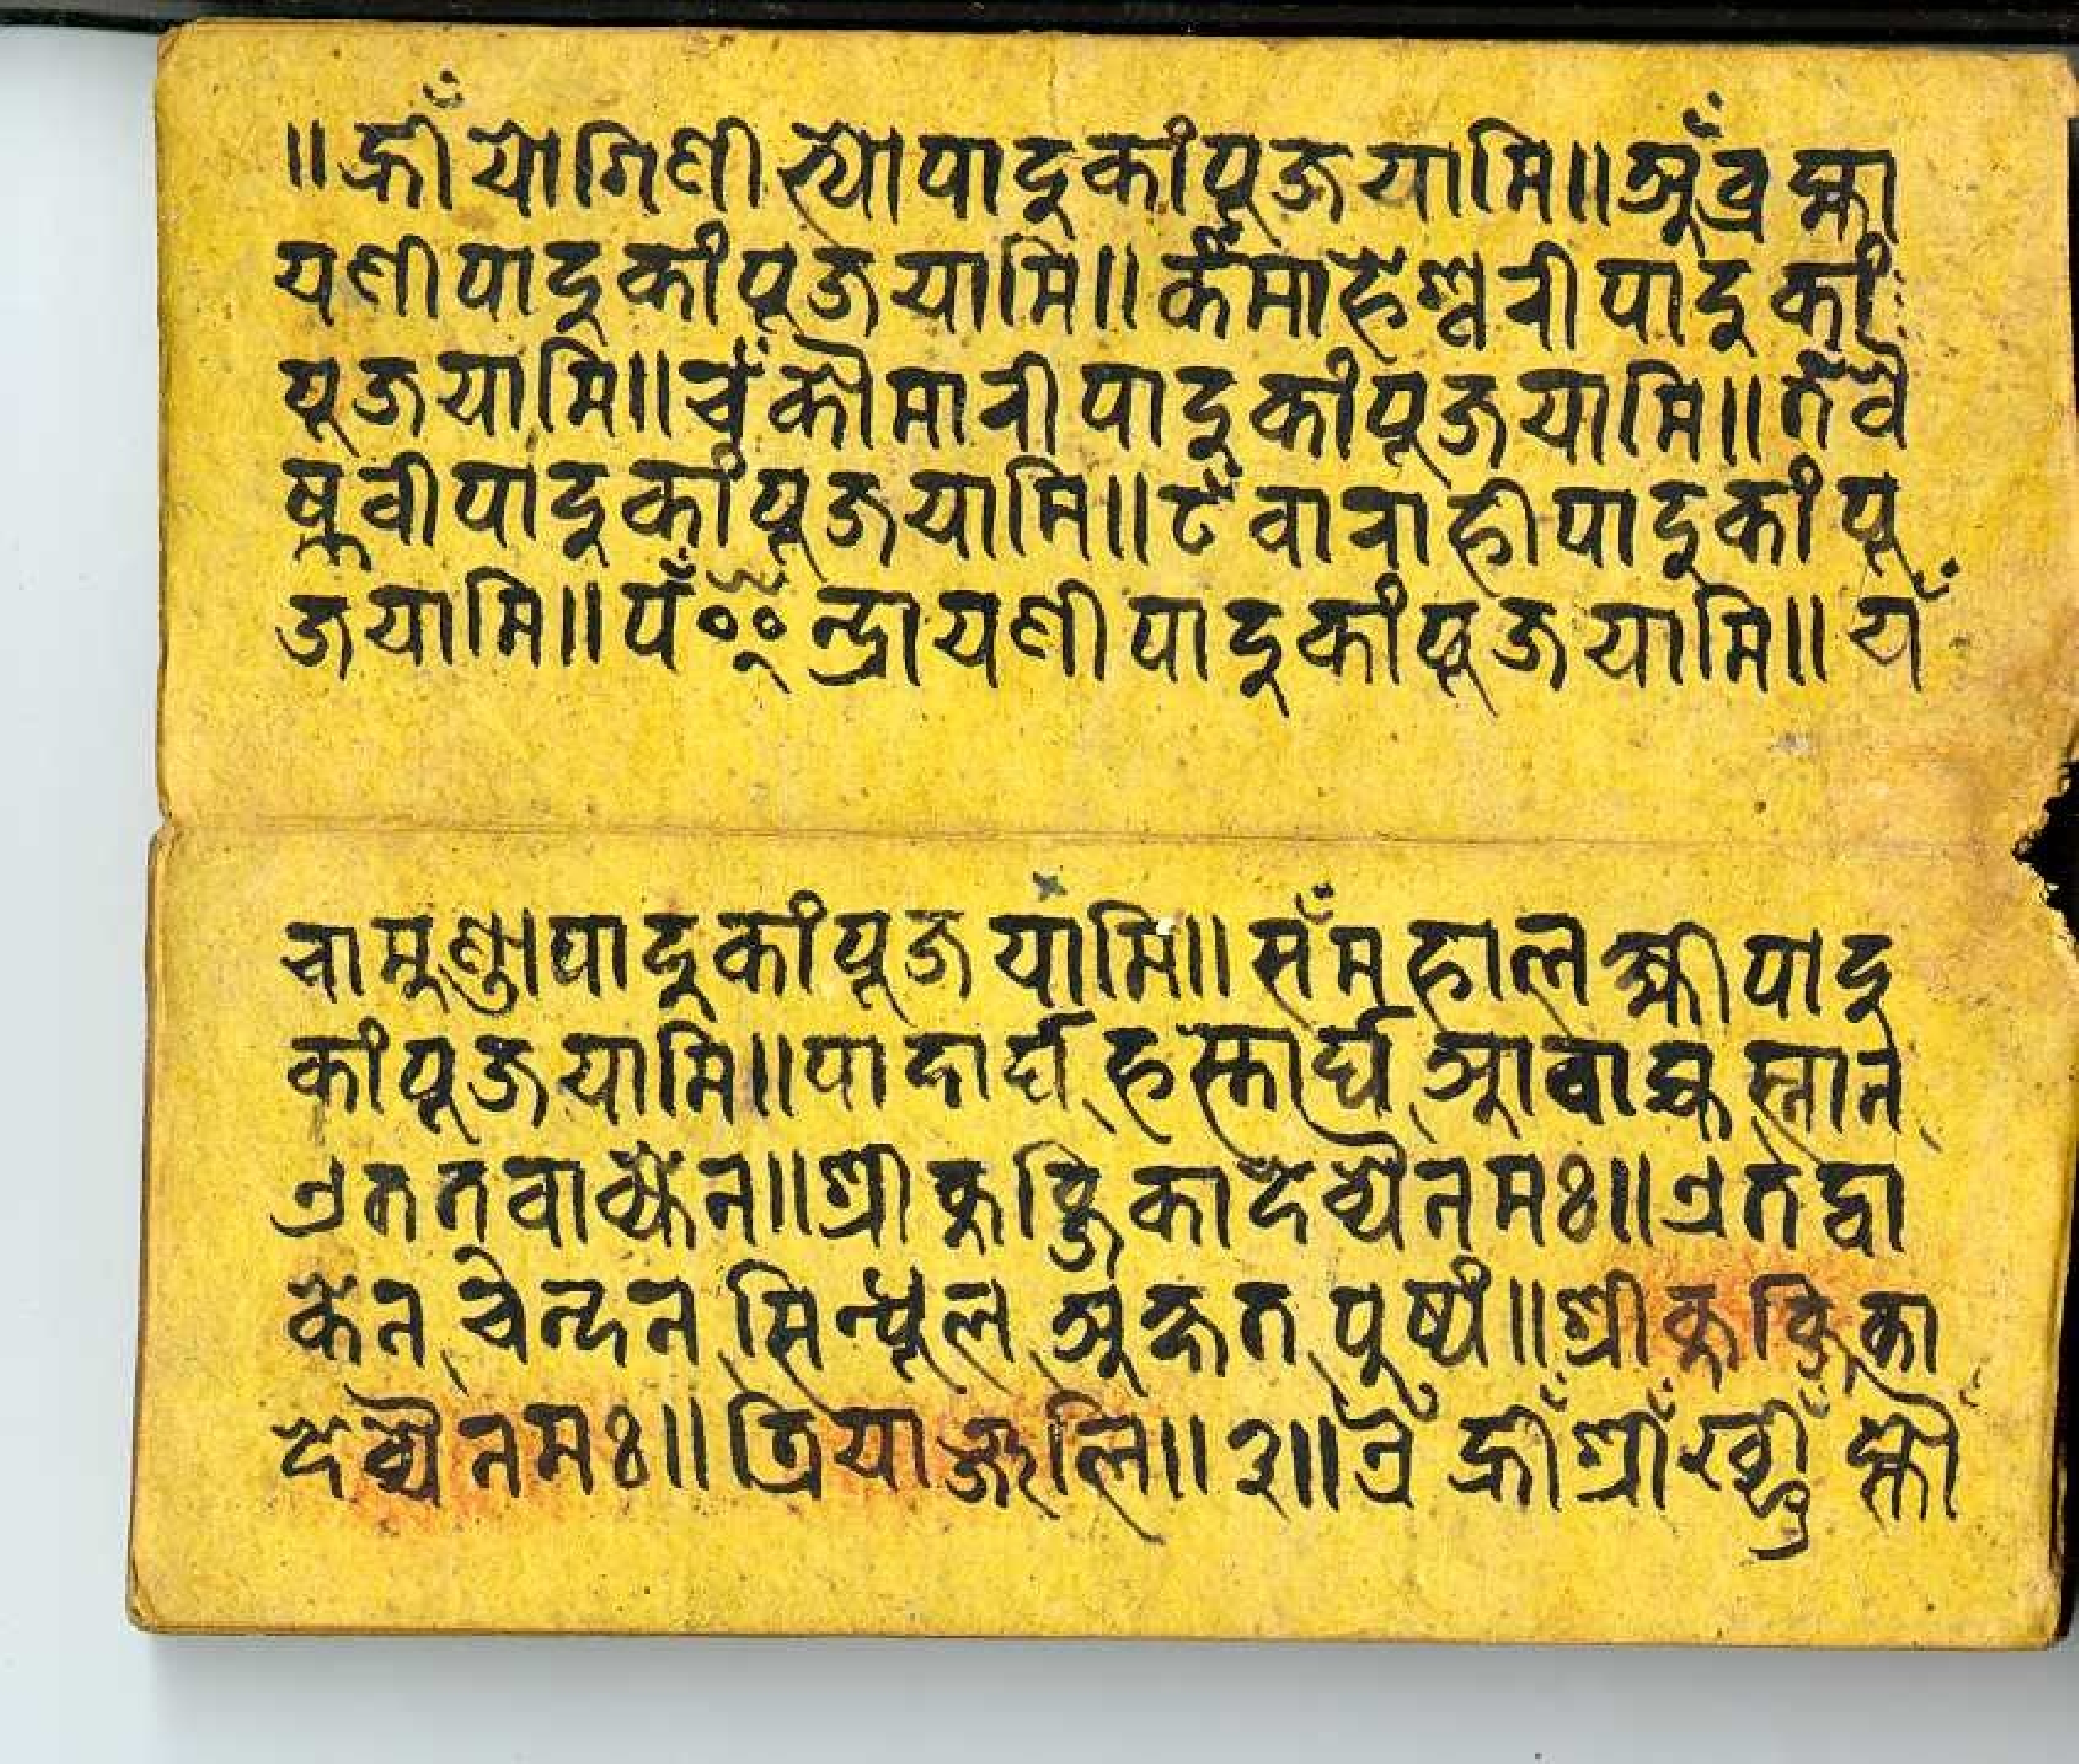 ॥ ह्रीँ योगिणीभ्यो पादुकां पूजयामि ॥ अँ ब्रह्मा
यणी पादुकां पूजयामि ॥ कँ माहेश्वरी पादुकां
पूजयामि ॥ चँ कौमारी पादुकां पूजयामि ॥ तँ वै
ष्णवी पादुकां पूजयामि ॥ टँ वाराही पादुकां पू
जयामि ॥ पँ इन्द्रायणी पादुकां पूजयामि ॥ यँ
चामूण्डा पादुकां पूजयामि ॥ सँ महालक्ष्मी पादु
कां पूजयामि ॥ पादार्घ हस्तार्घ आवाह्न स्नान
एतत् वाक्येन ॥ श्री कुब्जिकादेव्यै नमः ॥ एतद्वा
केन चेन्दन सिन्धूल अक्षत पुष्पं ॥ श्री कुब्जिका
देव्यै नमः ॥ त्रियाञ्जलि ॥ ३ ॥ ऐँ ह्रीँ श्रीँ